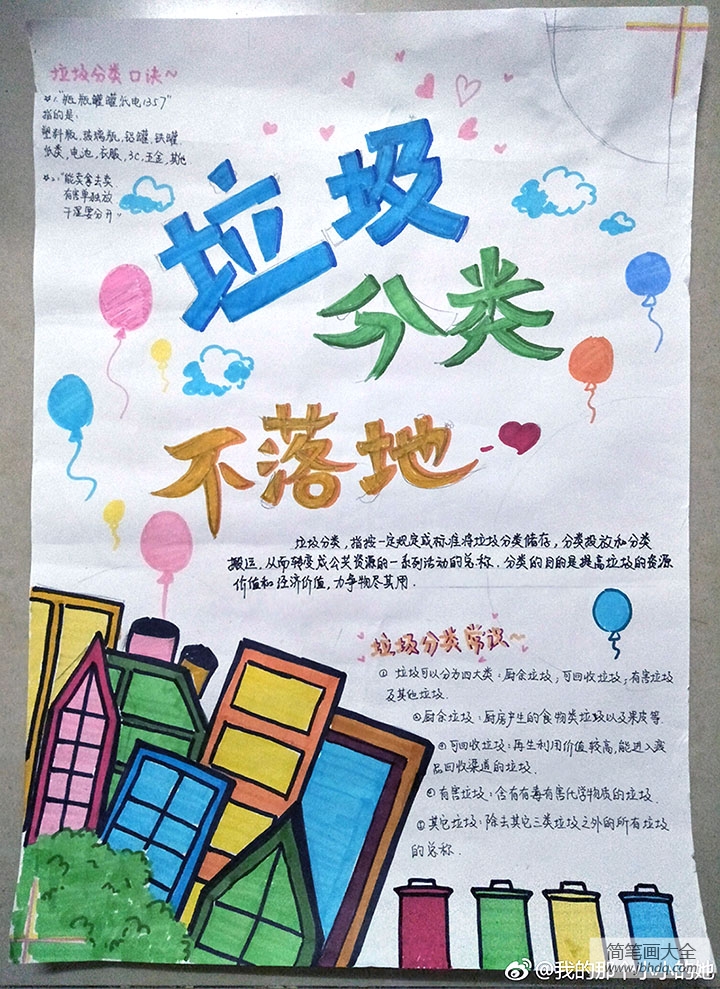 垃圾分类口诀~
☆1."瓶瓶罐罐纸电1357"
指的是:
塑料瓶,玻璃瓶,铝罐,铁罐
纸类,电池,衣服,3C,五金,其他
☆2."能卖拿去卖
有害单独放
干湿要分开"
垃圾
分类
不落地
垃圾分类,指按一定规定或标准将垃圾分类储存,分类投放和分类
搬运,从而转变成公共资源的一系列活动的总称.分类的目的是提高垃圾的资源
价值和经济价值,力争物尽其用.
垃圾分类常识~
① 垃圾可以分为四大类:厨余垃圾,可回收垃圾,有害垃圾
及其他垃圾.
②厨余垃圾:厨房产生的食物类垃圾以及果皮等.
③可回收垃圾:再生利用价值较高,能进入废
品回收渠道的垃圾.
④有害垃圾:含有有毒有害化学物质的垃圾.
⑤其它垃圾:除去其它三类垃圾之外的所有垃圾
的总称.
简笔画大全
www.jbhdq.com
@我的那个小小的她